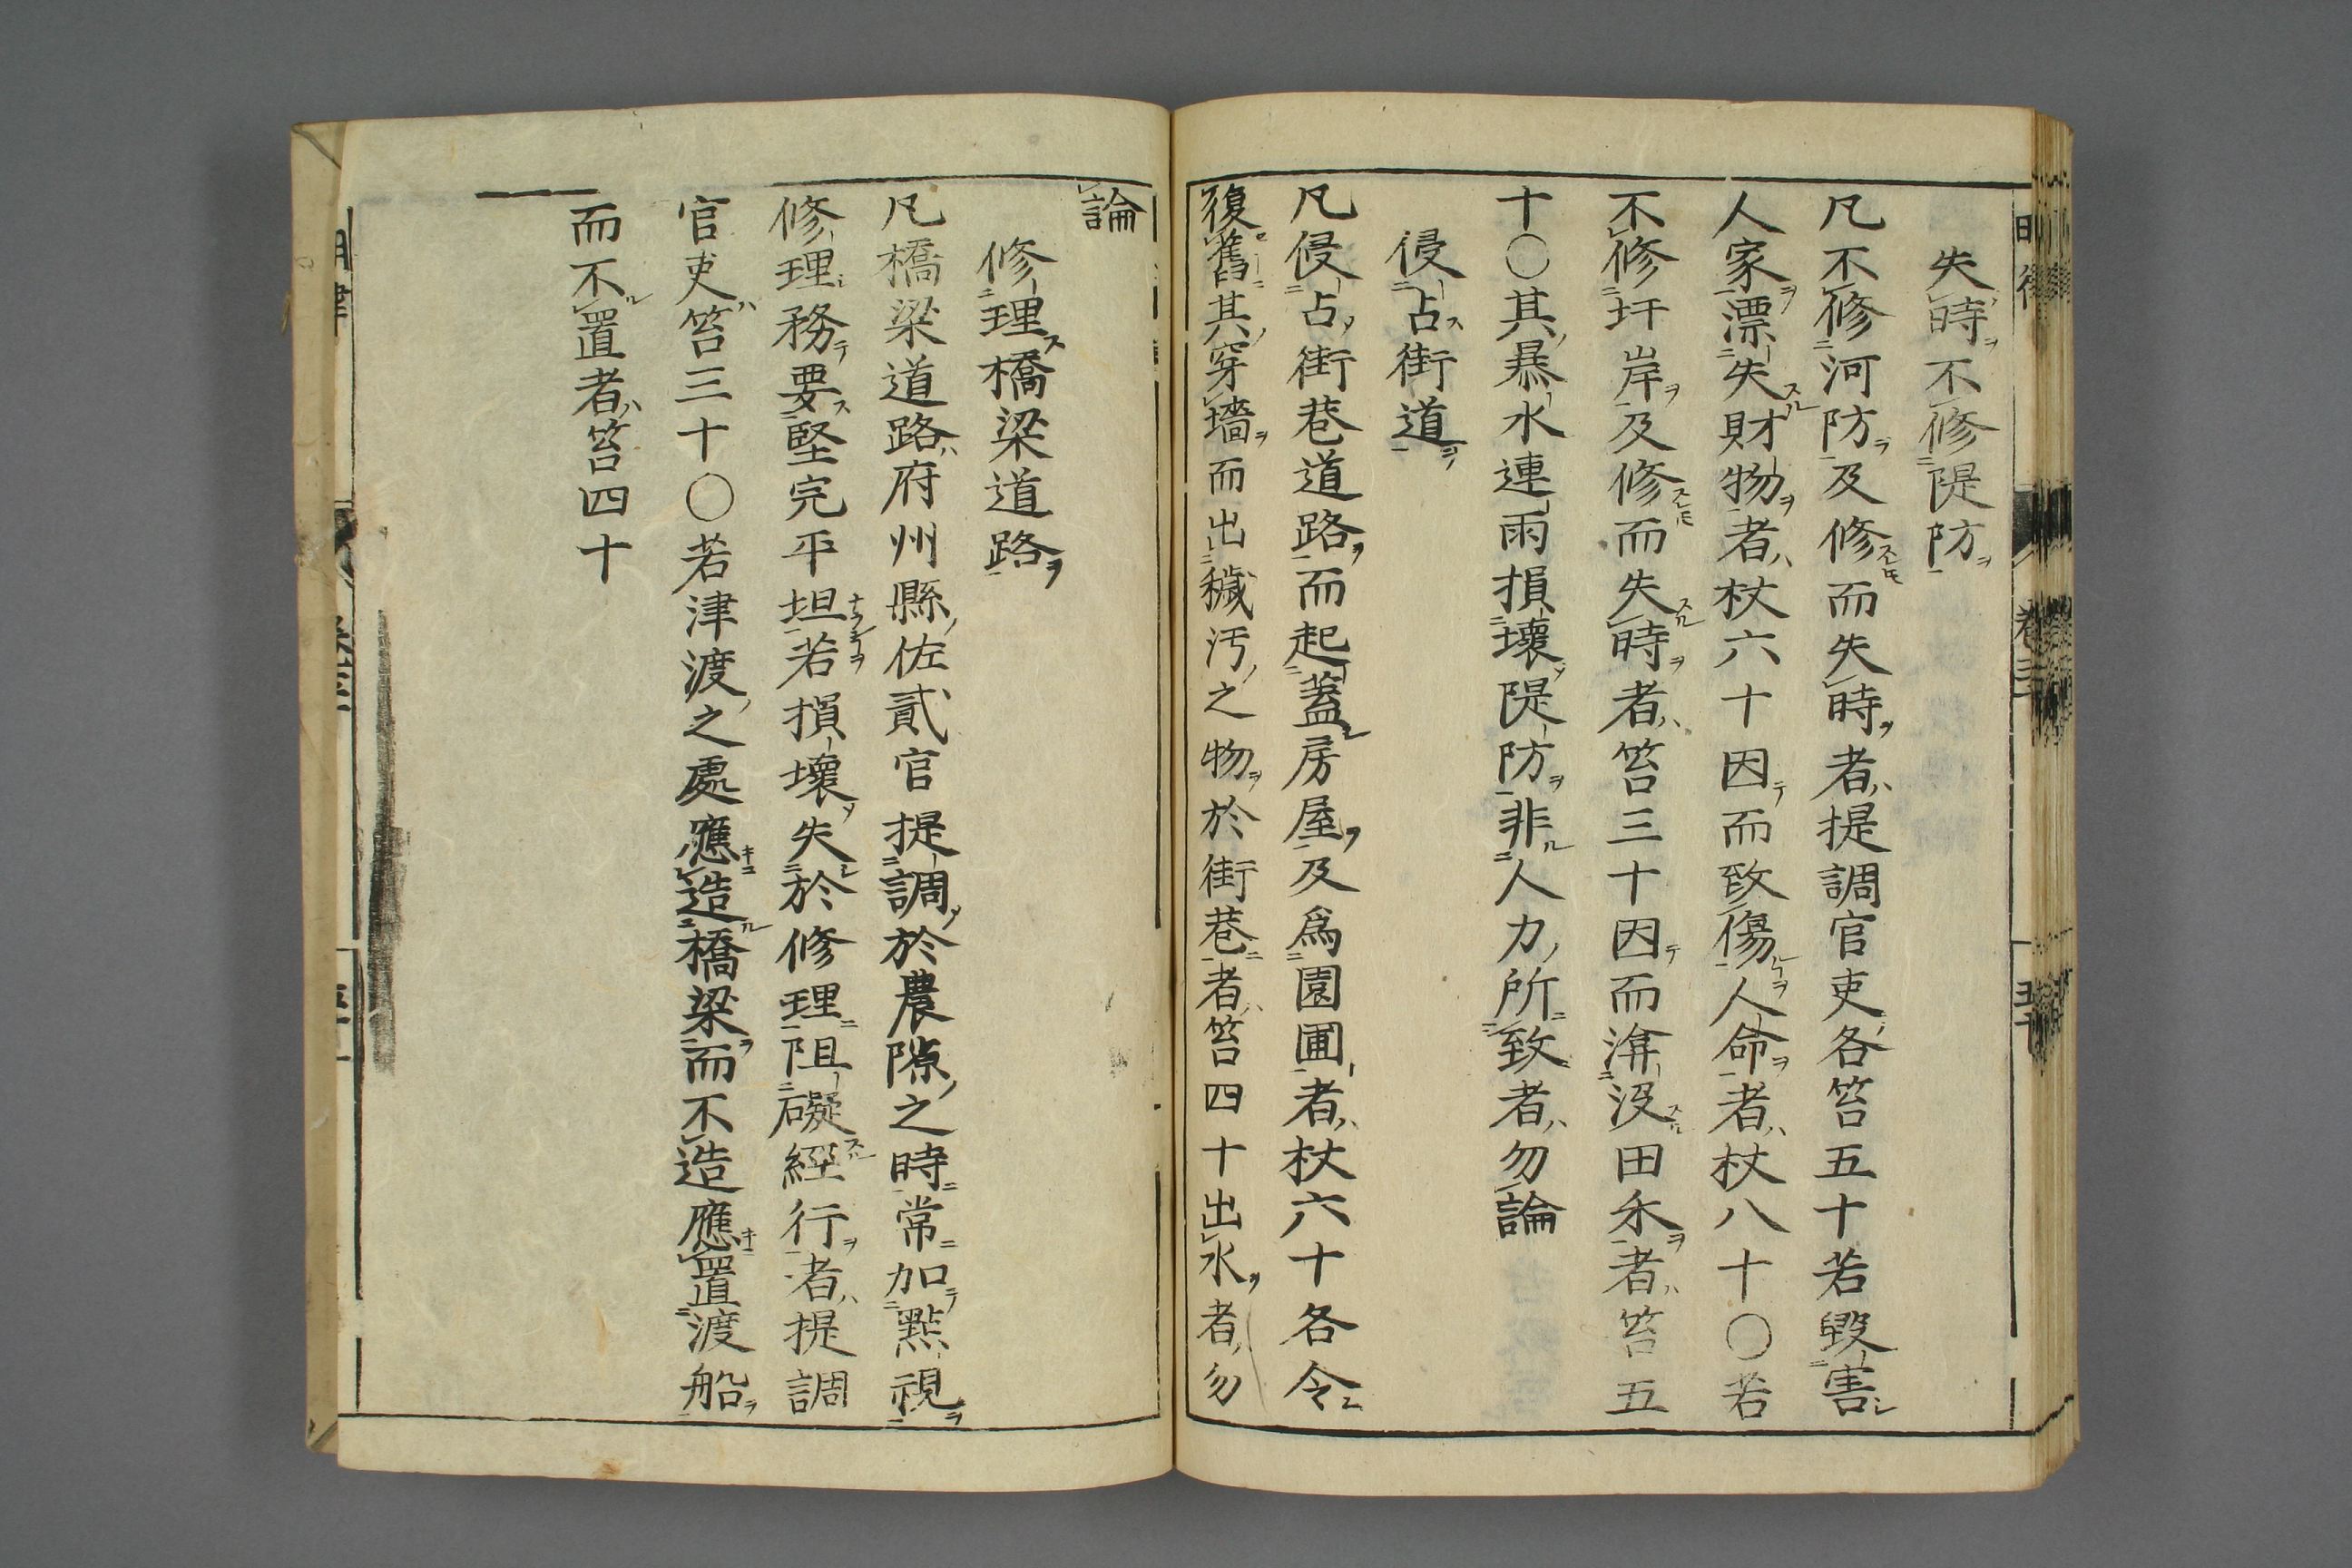 失時不修隄防
凡不修河防及修而失時者提調官吏各笞五十若毀害
人家漂失財物者杖六十因而致傷人命者杖八十〇若
不修圩岸及修而失時者笞三十因而渰沒田禾者笞五
十〇其暴水連雨損壞隄防非人力所致者勿論
侵占街道
凡侵占街巷道路而起蓋房屋及為園圃者杖六十各令
復舊其穿墻而出穢汚之物於街巷者笞四十出水者勿
論
修理橋梁道路
凡橋梁道路府州縣佐貳官提調於農隙之時常加點視
修理務要堅完平坦若損壞失於修理阻礙經行者提調
官吏笞三十〇若津渡之處應造橋梁而不造應置渡船
而不置者笞四十